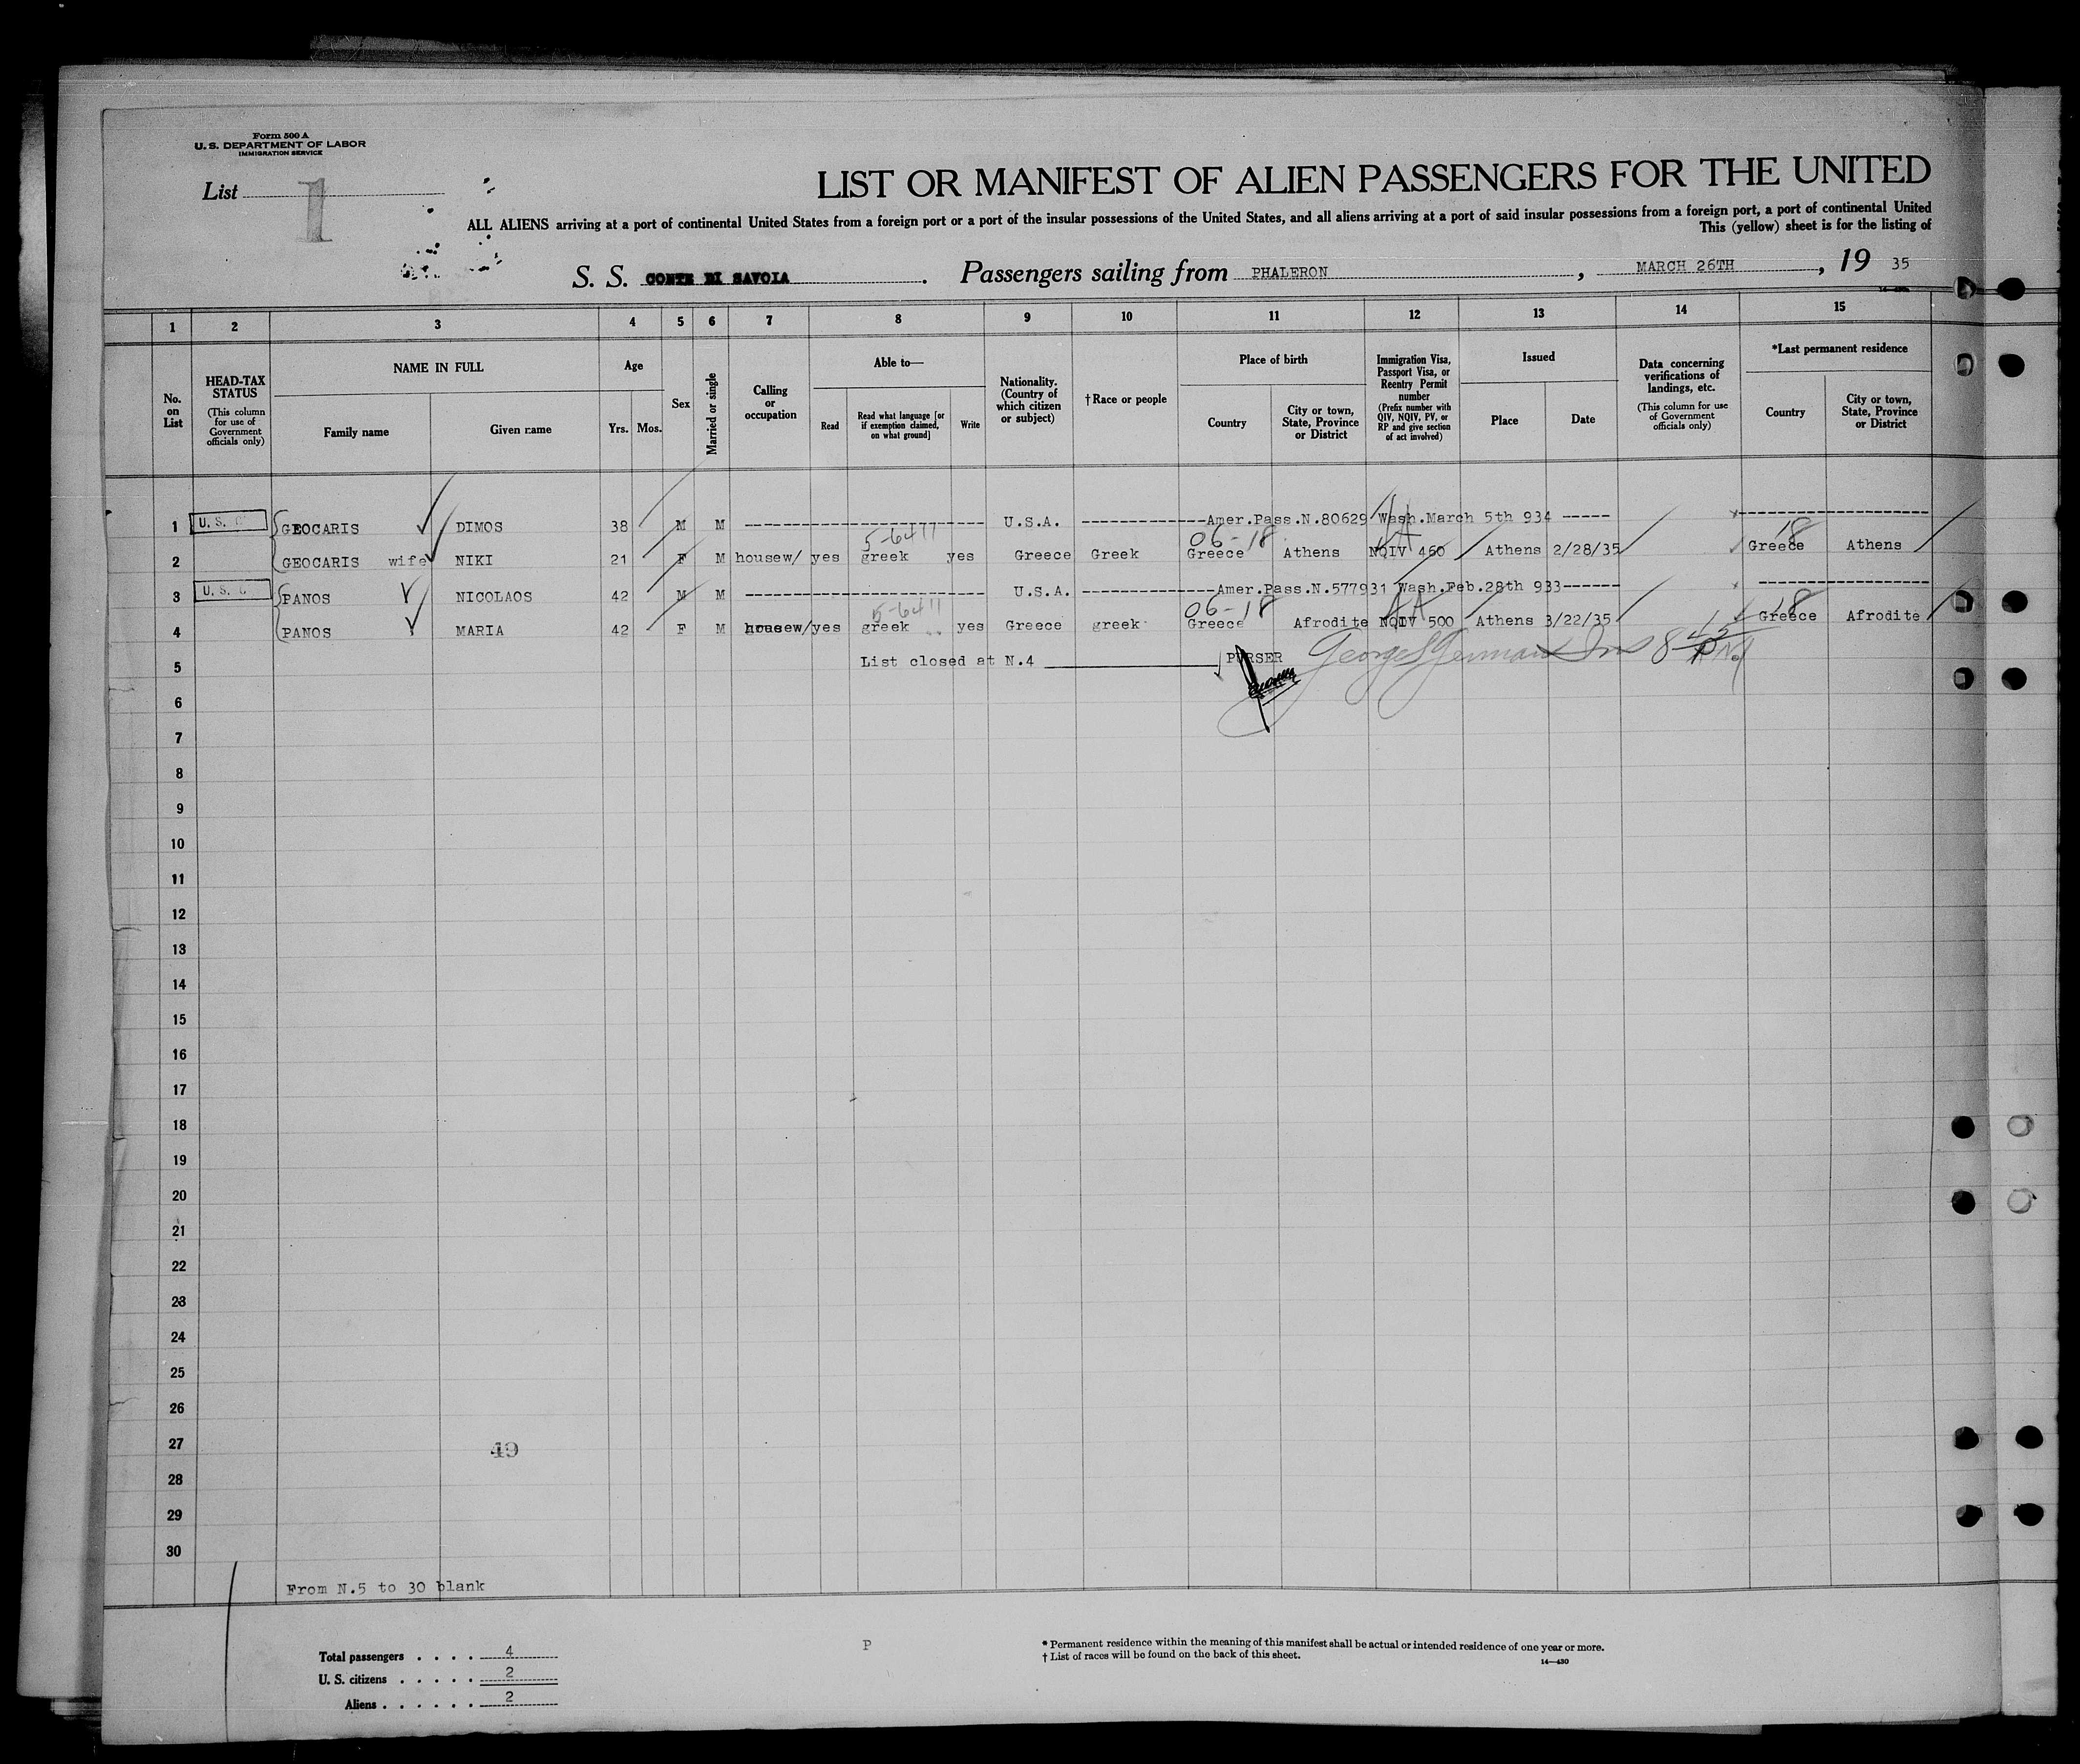 Form 500 A
U. S. DEPARTMENT OF LABOR
IMMIGRATION SERVICE
List 1
LIST OR MANIFEST OF ALIEN PASSENGERS FOR THE UNITED
ALL ALIENS arriving at a port of continental United States from a foreign port or a port of the insular possessions of the United States, and all aliens arriving at a port of said insular possessions from a foreign port, a port of continental United
This (yellow) sheet is for the listing of
S. S. CONTE DI SAVOIA. Passengers sailing from PHALERON, MARCH 26TH, 19 35
1 2 3 4 5 6 7 8 9 10 11 12 13 14 15
No. on List
HEAD-TAX STATUS
(This column for use of Government officials only)
NAME IN FULL
Family name
Given name
Age
Yrs.
Mos.
Sex
Married or single
Calling or occupation
Able to—
Read
Read what language [or if exemption claimed, on what ground]
Write
Nationality. (Country of which citizen or subject)
†Race or people
Place of birth
Country
City or town, State, Province or District
Immigration Visa, Passport Visa, or Reentry Permit number
(Prefix number with QIV, NQIV, PV, or RP and give section of act involved)
Issued
Place
Date
Data concerning verifications of landings, etc.
(This column for use of Government officials only)
*Last permanent residence
Country
City or town, State, Province or District
1 U. S. C GEOCARIS DIMOS 38 M M ---------- U.S.A. ----------Amer.Pass.N.80629 Wash.March 5th 934 -----
5-6411 06-18 18
2 GEOCARIS wife NIKI 21 F M housew/ yes greek yes Greece Greek Greece Athens NQIV 460 Athens 2/28/35 Greece Athens
3 U. S. C PANOS NICOLAOS 42 M M ---------- U.S.A. ----------Amer.Pass.N.577931 Wash.Feb.28th 933------
5-6411 06-18 18
4 PANOS MARIA 42 F M housew/yes greek yes Greece greek Greece Afrodite NQIV 500 Athens 3/22/35 Greece Afrodite
5 List closed at N.4 PURSER
6
7
8
9
10
11
12
13
14
15
16
17
18
19
20
21
22
23
24
25
26
27 49
28
29
30
From N.5 to 30 blank
Total passengers . . . . 4
U. S. citizens . . . . . 2
Aliens . . . . . . 2
P
* Permanent residence within the meaning of this manifest shall be actual or intended residence of one year or more.
† List of races will be found on the back of this sheet.
14—430